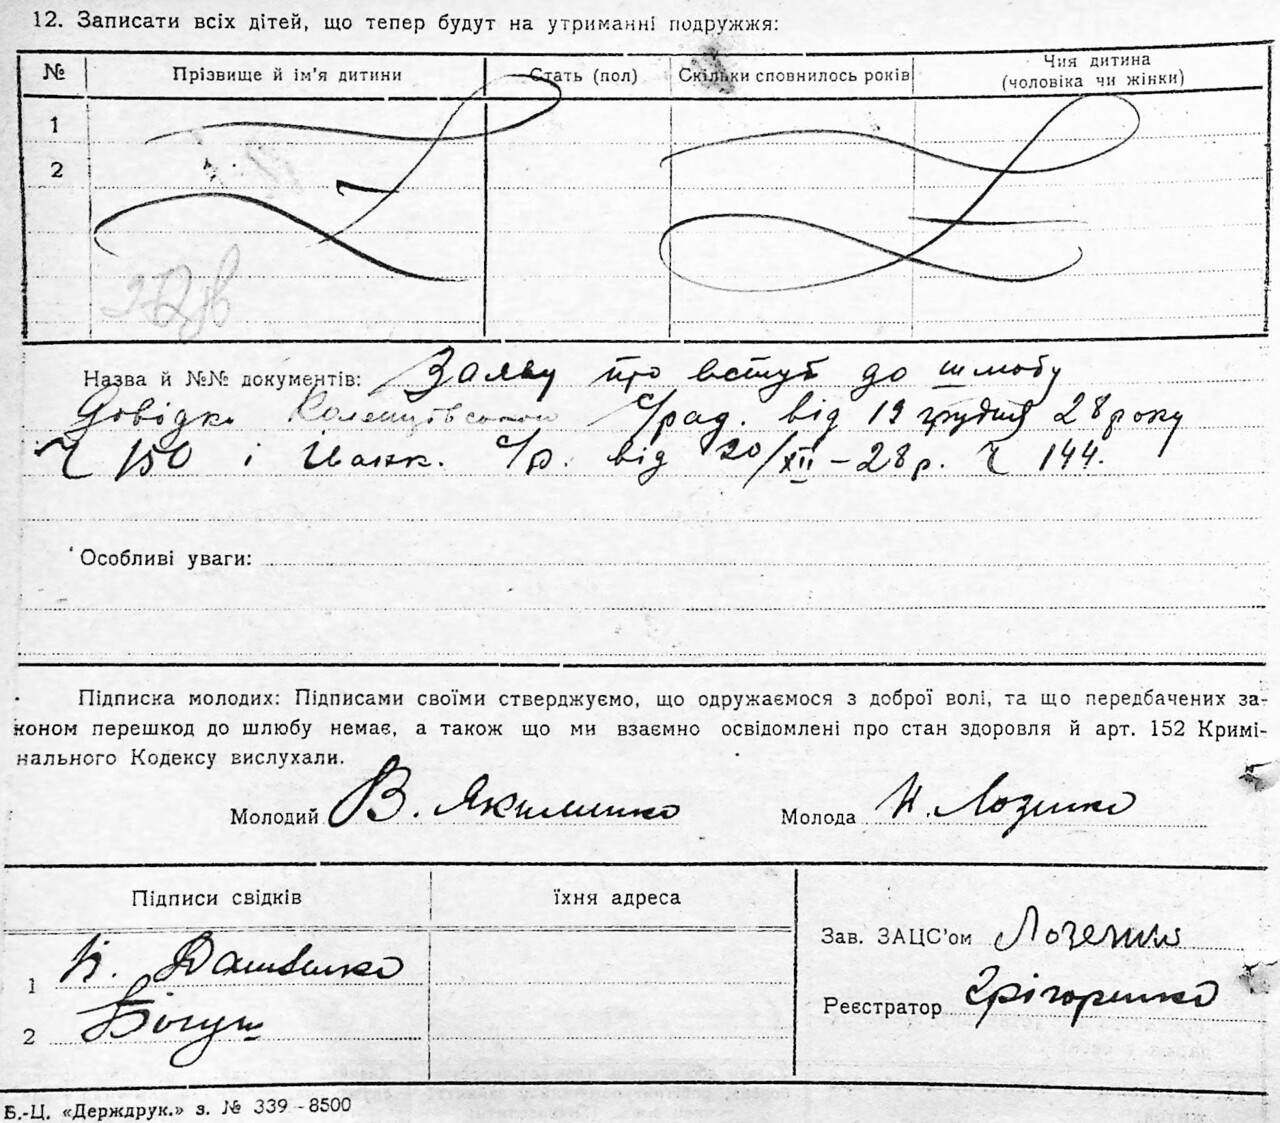 12. Записати всіх дітей, що тепер будуть на утриманні подружжя:
№ Прізвище й ім'я дитини Стать (пол) Скільки сповнилось років Чия дитина (чоловіка чи жінки)
1
2
Назва й №№ документів: Заяву про вступ до шлюбу
Довідки с/рад. від 19 грудня 28 року
Ч 150 і с/р. від 20/XII – 28 р. Ч 144.
Особливі уваги:
Підписка молодих: Підписами своїми стверджуємо, що одружаємося з доброї волі, та що передбачених за-
коном перешкод до шлюбу немає, а також що ми взаємно освідомлені про стан здоровля й арт. 152 Кримі-
нального Кодексу вислухали.
Молодий В. Якименко Молода Н. Лозенко
Підписи свідків їхня адреса
Зав. ЗАЦС'ом
1
Реєстратор Грігоренко
2 Богуш
Б.-Ц. «Держдрук.» з. № 339 – 8500